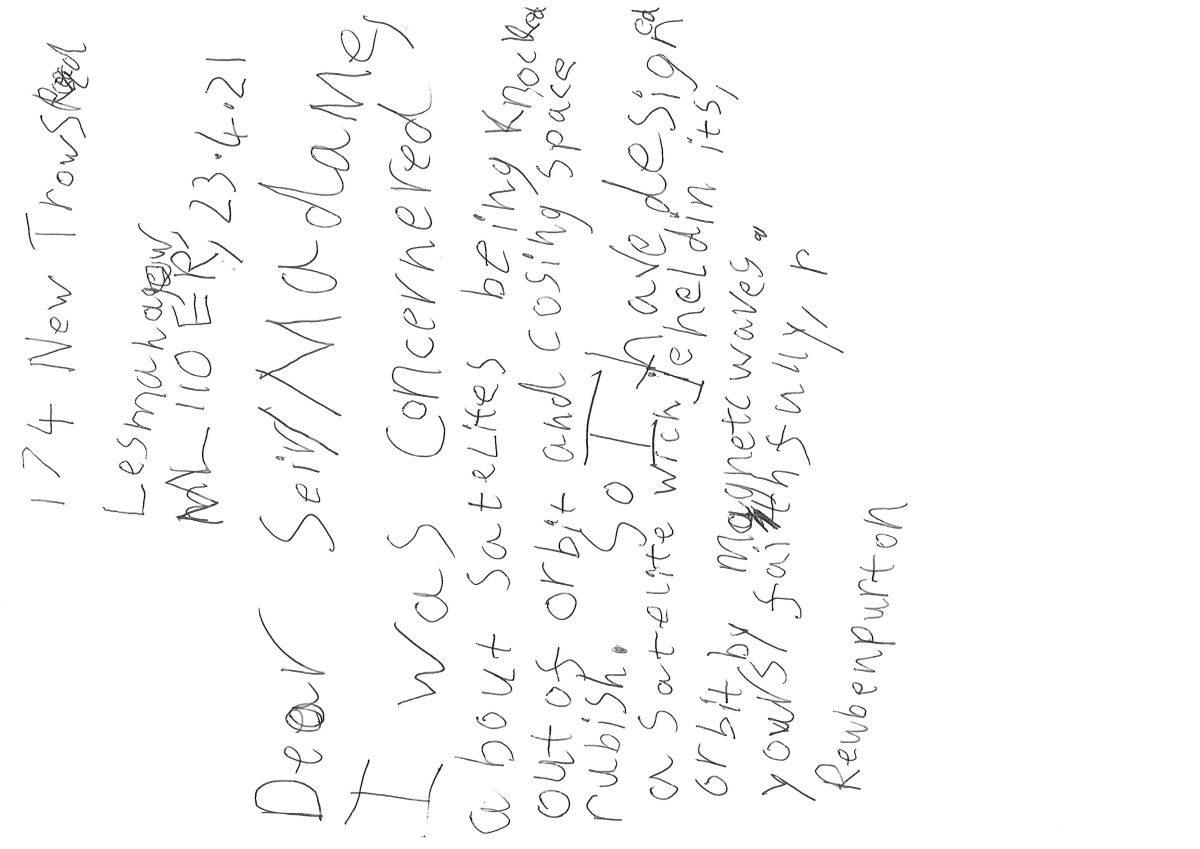 174 New Trows Road
Lesmahagow
ML 110ER, 23.4.21
Dear Seir/Madame,
I was Concernered
about sateLites being knocked
out of orbit and cosing space
rubish. So I have designed
a sateLite wich I heLd in its,
orbit by magnetc waves.
yours, faithfully, r
Reubenpurton